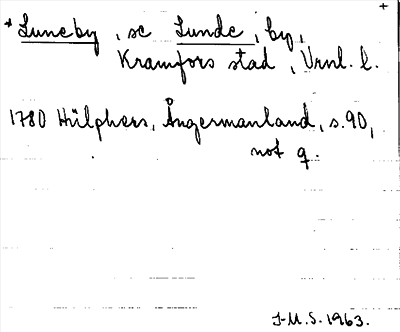 +
* Luneby, se Lunde, by,
Kramfors stad, Vrnl. l.
1780 Hülphers, Ångermanland, s. 90,
not q.
J-M.S. 1963.